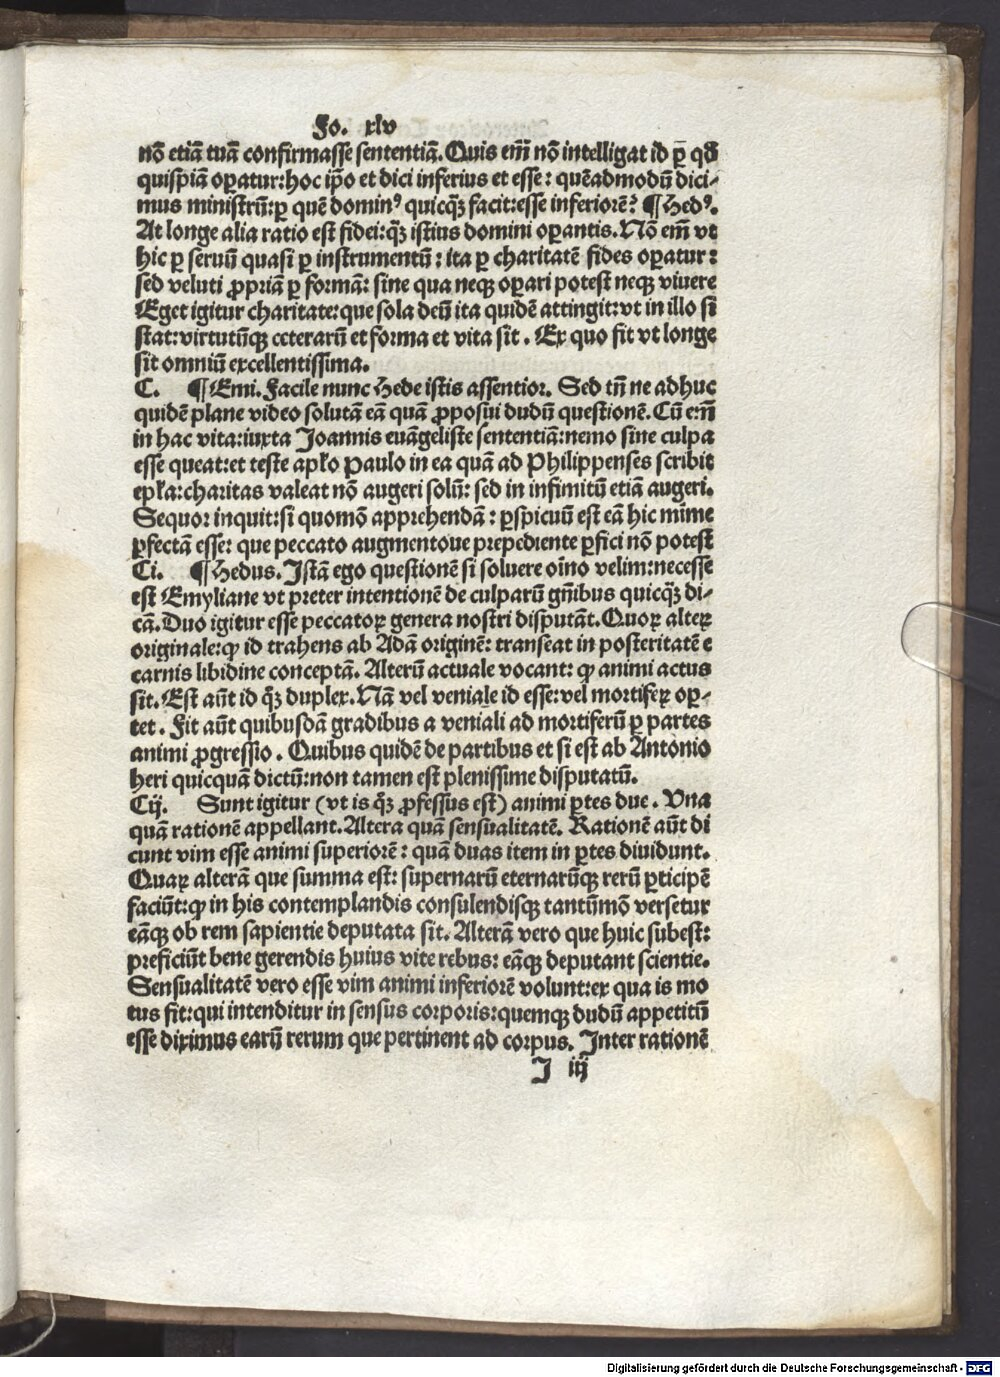 Fo. xlv
nō etiā tuā confirmasse sententiā. Quis em̄ nō intelligat id ꝑ qđ
quispiā oꝑatur: hoc ip̄o et dici inferius et esse: quēadmodū dici-
mus ministrū: ꝑ quē dominꝰ quicꝙ̄ facit: esse inferiorē? ¶ Hedꝰ.
At longe alia ratio est fidei: ꝙ̄ istius domini oꝑantis. Nō em̄ vt
hic ꝑ seruū quasi ꝑ instrumentū: ita ꝑ charitatē fides oꝑatur:
sed veluti ꝓpriā ꝑ formā: sine qua neqꝫ oꝑari potest neqꝫ viuere
Eget igitur charitate: que sola deū ita quidē attingit: vt in illo si
stat: virtutūqꝫ ceterarū et forma et vita sit. Ex quo fit vt longe
sit omniū excellentissima.
C. ¶ Emi. Facile nunc Hede istis assentior. Sed tn̄ ne adhuc
quidē plane video solutā eā quā ꝓposui dudū questionē. Cū em̄
in hac vita: iuxta Joannis euāgeliste sententiā: nemo sine culpa
esse queat: et teste apƚo Paulo in ea quā ad Philippenses scribit
epƚa: charitas valeat nō augeri solū: sed in infinitū etiā augeri.
Sequor inquit: si quomō apprehendā: ꝑspicuū est eā hic mīme
ꝑfectā esse: que peccato augmentoue prepediente ꝑfici nō potest
Ci. ¶ Hedus. Istā ego questionē si soluere oīno velim: necesse
est Emyliane vt preter intentionē de culparū gn̄ibus quicꝙ̄ di-
cā. Duo igitur esse peccatoꝝ genera nostri disputāt. Quoꝝ alteꝝ
originale: ꝙ id trahens ab Adā originē: transeat in posteritatē e
carnis libidine conceptā. Alterū actuale vocant: ꝙ animi actus
sit. Est aūt id ꝙ̄ duplex. Nā vel veniale id esse: vel mortifeꝝ opꝛ-
tet. Fit aūt quibusdā gradibus a veniali ad mortiferū ꝑ partes
animi ꝓgressio. Quibus quidē de partibus et si est ab Antonio
heri quicquā dictū: non tamen est plenissime disputatū.
Cij. Sunt igitur (vt is ꝙ̄ ꝓfessus est) animi ꝑtes due. Vna
quā rationē appellant. Altera quā sensualitatē. Rationē aūt di
cunt vim esse animi superiorē: quā duas item in ꝑtes diuidunt.
Quaꝝ alterā que summa est: supernarū eternarūqꝫ rerū ꝑticipē
faciūt: ꝙ in his contemplandis consulendisqꝫ tantūmō versetur
eāqꝫ ob rem sapientie deputata sit. Alterā vero que huic subest:
preficiūt bene gerendis huius vite rebus: eāqꝫ deputant scientie.
Sensualitatē vero esse vim animi inferiorē volunt: ex qua is mo
tus fit: qui intenditur in sensus corporis: quemqꝫ dudū appetitū
esse diximus earū rerum que pertinent ad corpus. Inter rationē
I iij
Digitalisierung gefördert durch die Deutsche Forschungsgemeinschaft - DFG